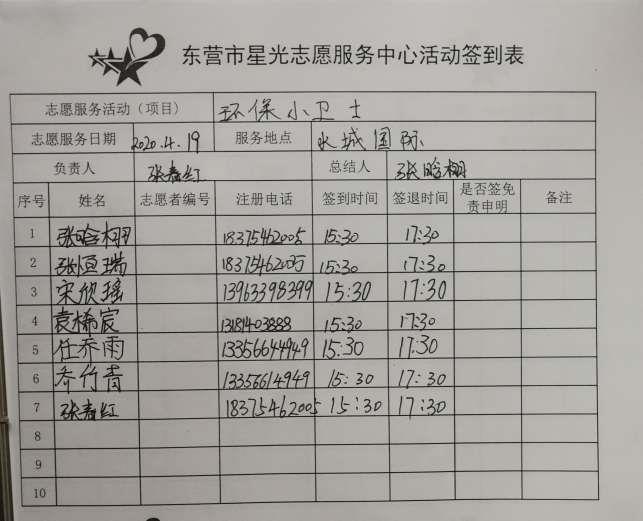 东营市星光志愿服务中心活动签到表
志愿服务活动（项目） 环保小卫士
志愿服务日期 2020.4.19 服务地点 水城国际
负责人 张春红 总结人 张晗栩
序号 姓名 志愿者编号 注册电话 签到时间 签退时间 是否签免责申明 备注
1 张晗栩 18375462005 15:30 17:30
2 张恒瑞 15:30 17:30
3 宋欣瑶 13963398399 15:30 17:30
4 袁梯宸 15:30 17:30
5 任乔雨 13356644949 15:30 17:30
6 乔竹青 13356614949 15:30 17:30
7 张春红 18375462005 15:30 17:30
8
9
10